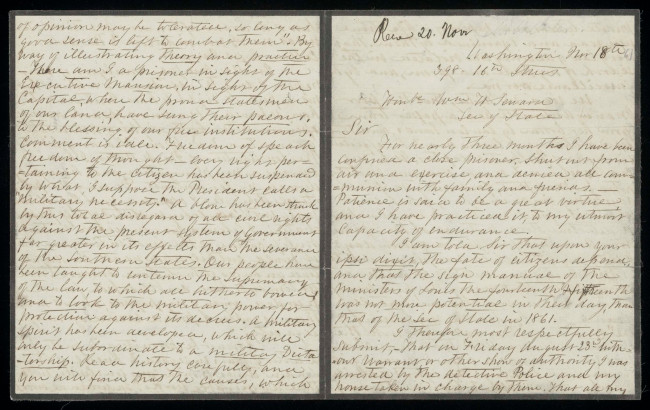 of opinion may be tolerated, so long as
good sense is left to combat them" & By
way of illustrating theory and practice
— Here am I a prisoner in sight of the
Executive Mansion, in sight of the
Capitol, where the proud statesmen
of our land, have sung their paeons,
to the blessing of our free institutions.
Comment is idle. Freedom of speech
freedom of thought — every right per-
=taining to the citizen has been suspended
by what I suppose the President calls a
"Military necessity". A blow has been struck
by this total disregard of all civil rights
against the present system of Government
far greater in its effects than the severance
of the Southern States. Our people have
been taught to contemn the supremacy
of the law to which all hitherto bowed
and to look to the military power for
protection against its decrees. A military
spirit has been developed, which will
only be subordinate to a military Dicta
-torship. Read history carefully, and
you will find that the causes, which
Recd 20. Nov
Washington Nov 18th
398. 16th Street
Honble Wm H Seward
Secy of State
Sir
For nearly three months I have been
confined a close prisoner, Shut out from
air and exercise and denied all com
=munion with family and friends. —
"Patience is said to be a great virtue,"
and I have practiced it to my utmost
capacity of endurance.
I am told, Sir that upon your
ipse dixit, the fate of citizens depends,
and that the sign manual of the
Ministers of Louis the fourteenth & fifteenth
was not more potential in their day, than
that of the Sec of State in 1861.
I therefor most respectfully
submit, that on Friday August 23d with-
out Warrant or other show of authority, I was
arrested by the detective Police and my
house taken in charge by them. That all my